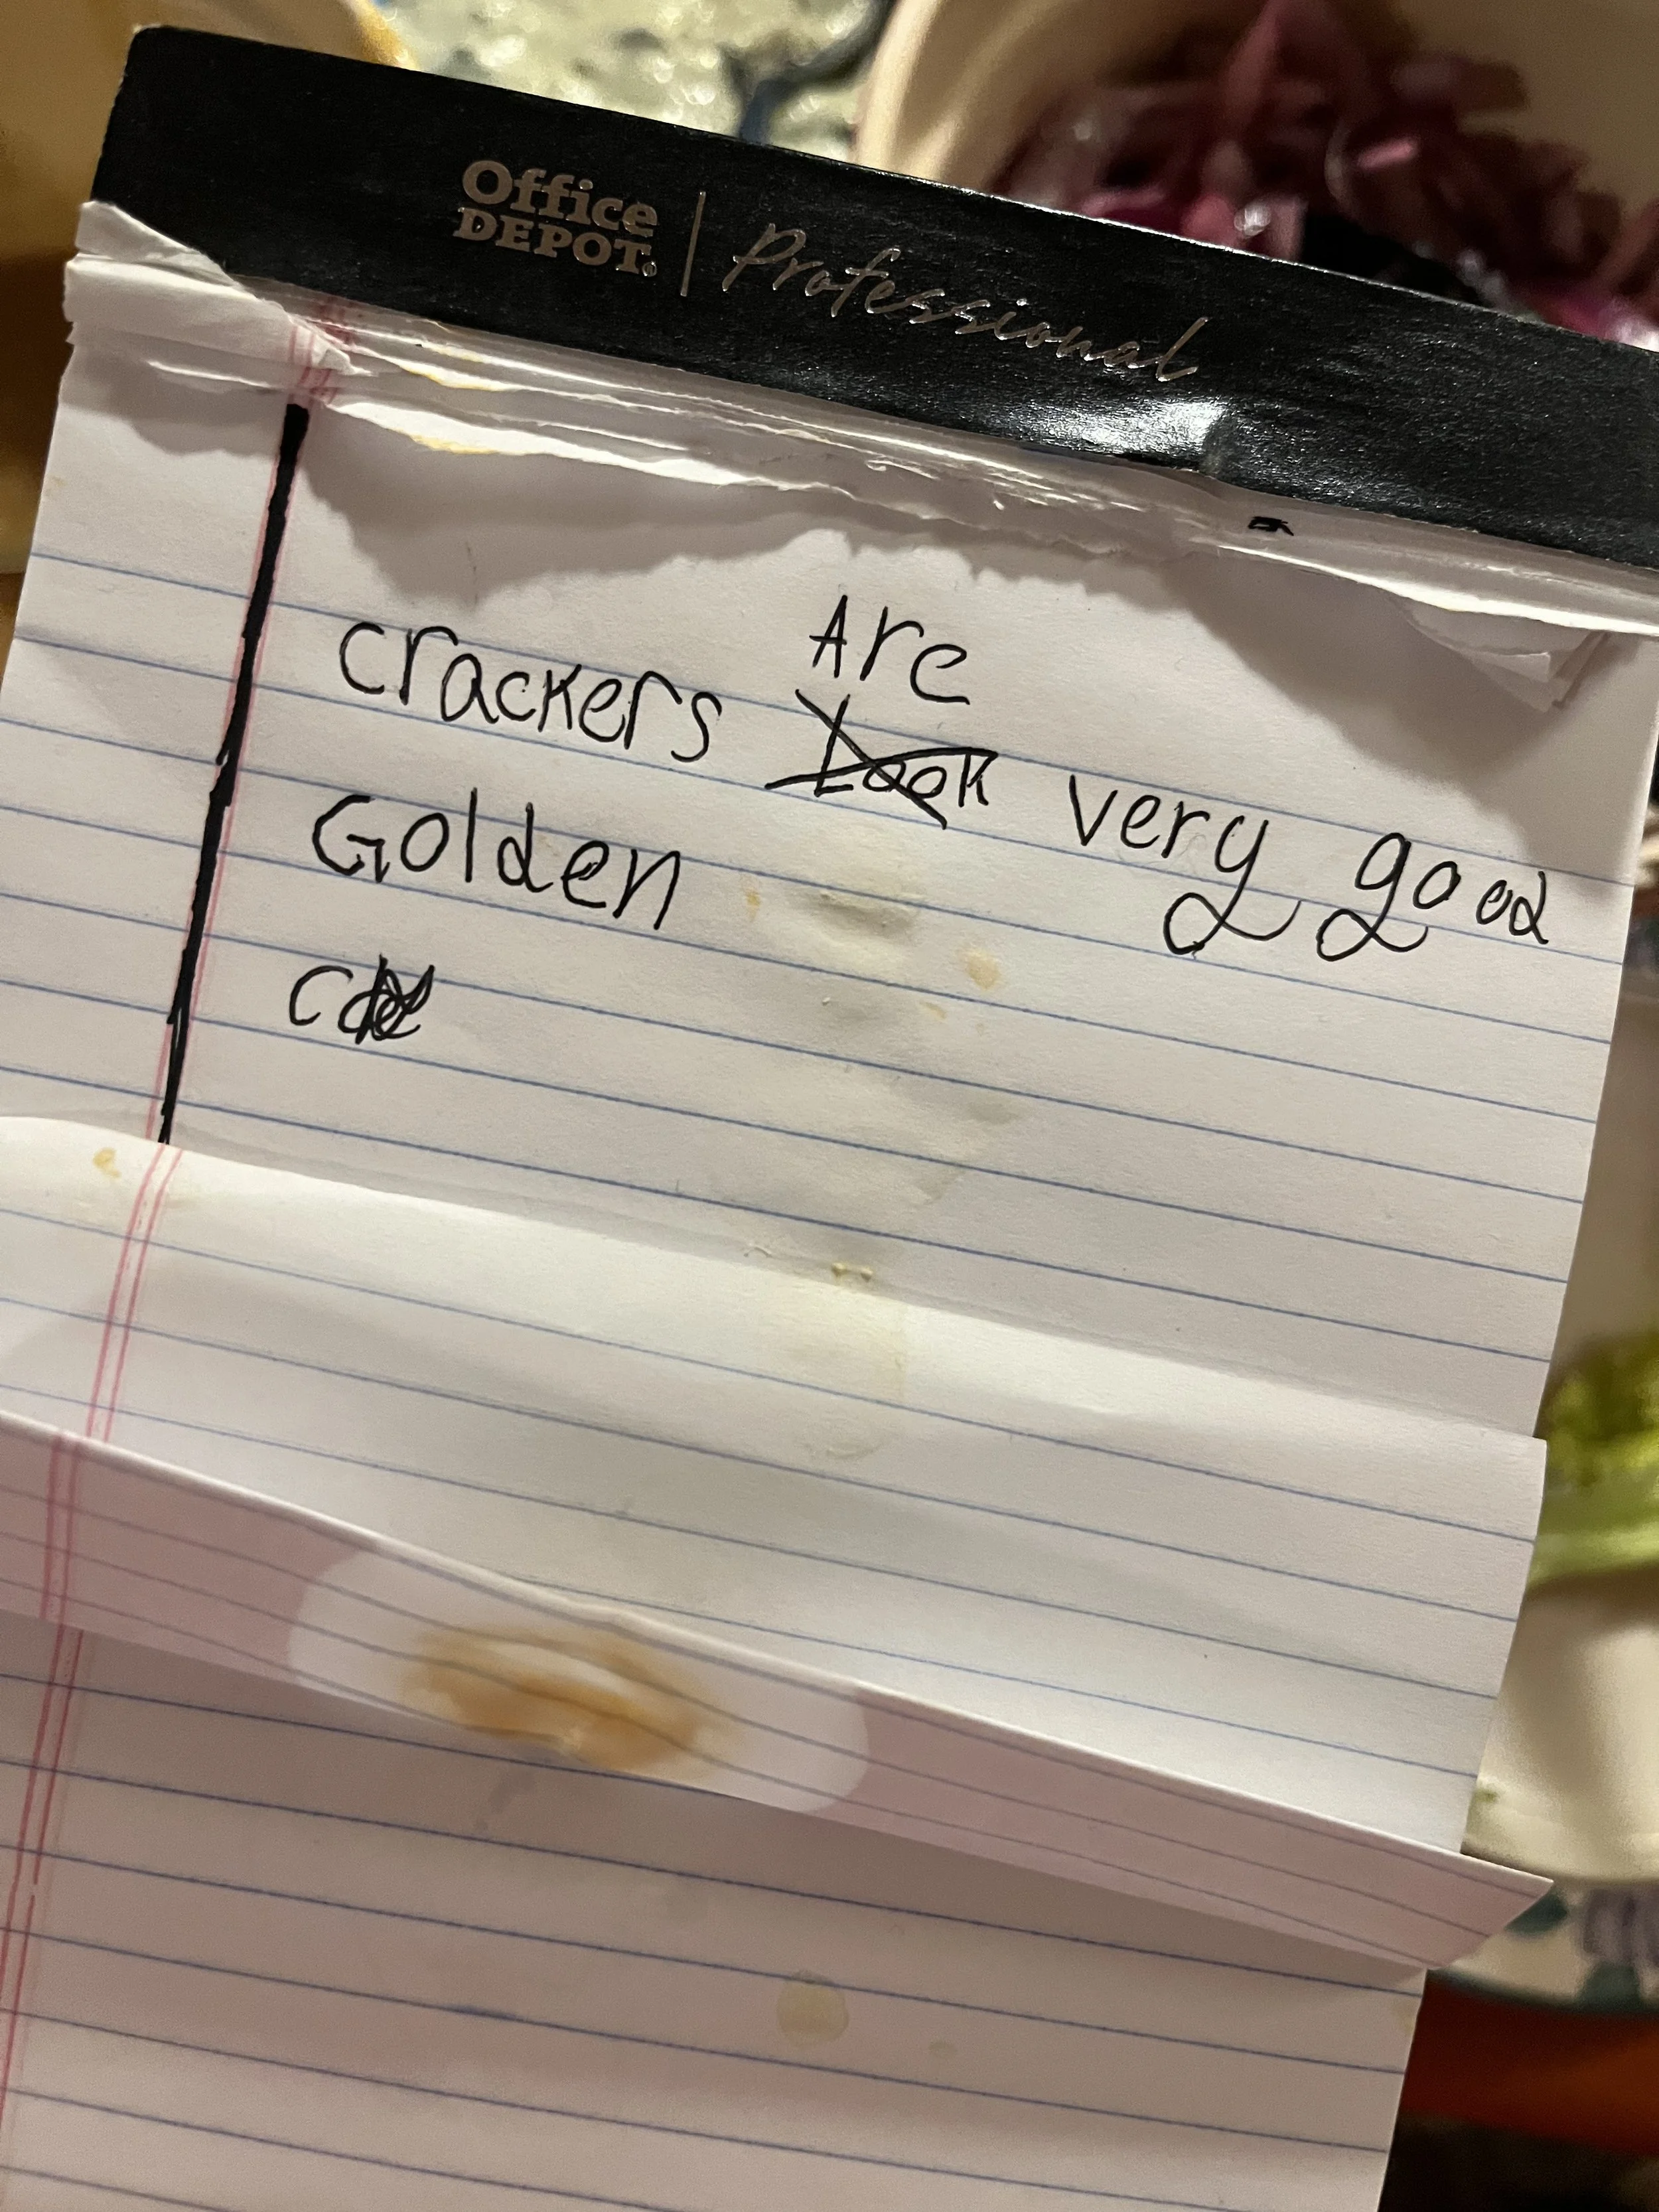 Office DEPOT. | Professional
Are
crackers Look very good
Golden